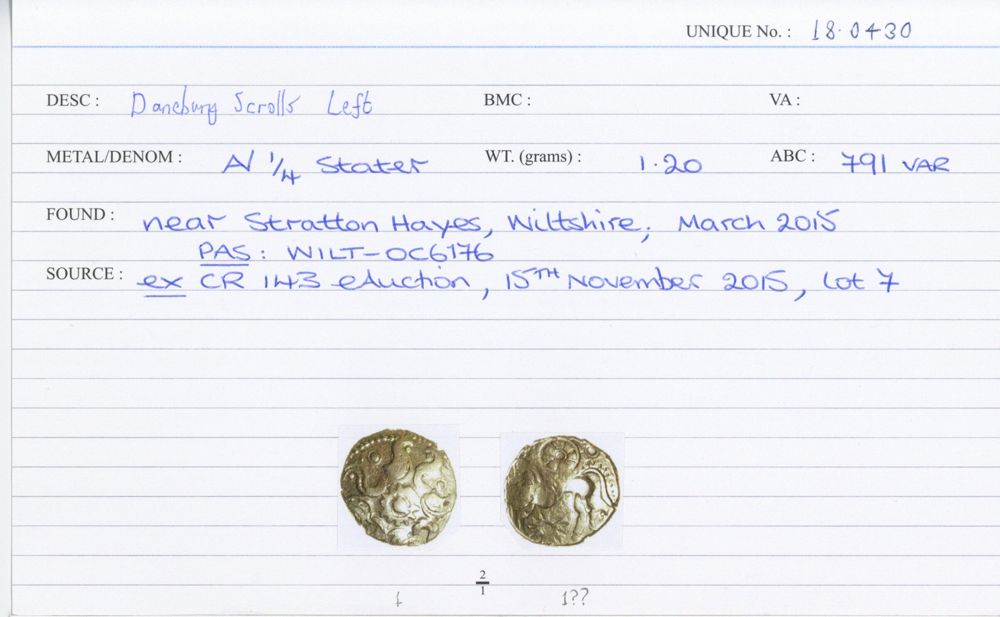 UNIQUE No. : 18.0430
DESC : Danebury Scrolls Left BMC : VA :
METAL/DENOM : A/ 1/4 Stater WT. (grams) : 1.20 ABC : 791 VAR
FOUND : near Stratton Hayes, Wiltshire; March 2015
PAS : WILT-0C6176
SOURCE : ex CR 143 eAuction, 15TH November 2015, Lot 7
2
1
1??